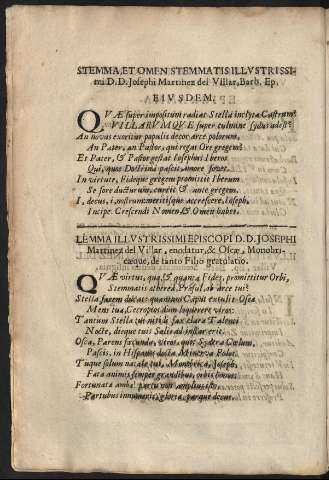 STEMMA, ET OMEN STEMMATIS ILLVSTRISSI-
mi D.D. Josephi Martinez del Villar, Barb. Ep.
EIVSDEM.
QVÆ super impositum radiat Stella inclyta Castrum?
VILLARVMQVE super culmine sydus adest?
An novus exoritur populis decor arce polorum,
An Pater, an Pastor, qui regat Ore gregem?
Et Pater, & Pastor gestat Iosephus Iberos
Qui, quos Doctrina pascit, amore fovet.
In virtute, Fideque gregem promittit Iterum
Se fore ducturum, cum ante gregem.
I, decus, i, nostrum: meritisque accrescere, Ioseph,
Incipe: Crescendi Nomen, & Omen habes.
LEMMA ILLVSTRISSIMI EPISCOPI D.D. JOSEPHI
Martinez del Villar, enodatur, & Oscæ, Monobri-
cæque, de tanto Filio gratulatio.
QVÆ virtus, quæ, & quanta Fides, promittitur Orbi,
Stemmatis æthereâ, Præsul, ab arce tui?
Stella facem ducat: quantum Caput extulit Osca
Mens tua, Cecropios dum superere viros:
Tantum Stella tui nitidi fax clara Talenti
Nocte, dieque tui Solis ad instar erit.
Osca, Parens fæcunda, viros, quot Sydera Cœlum,
Pascis, in Hispano docta Minerva Polo.
Tuque solum natale tui, Monobrica, Joseph,
Fata animis semper grandibus, orbis honos:
Fortunata ambæ partu non amplius isto,
Partubus innumeris, gloria, parque decus.